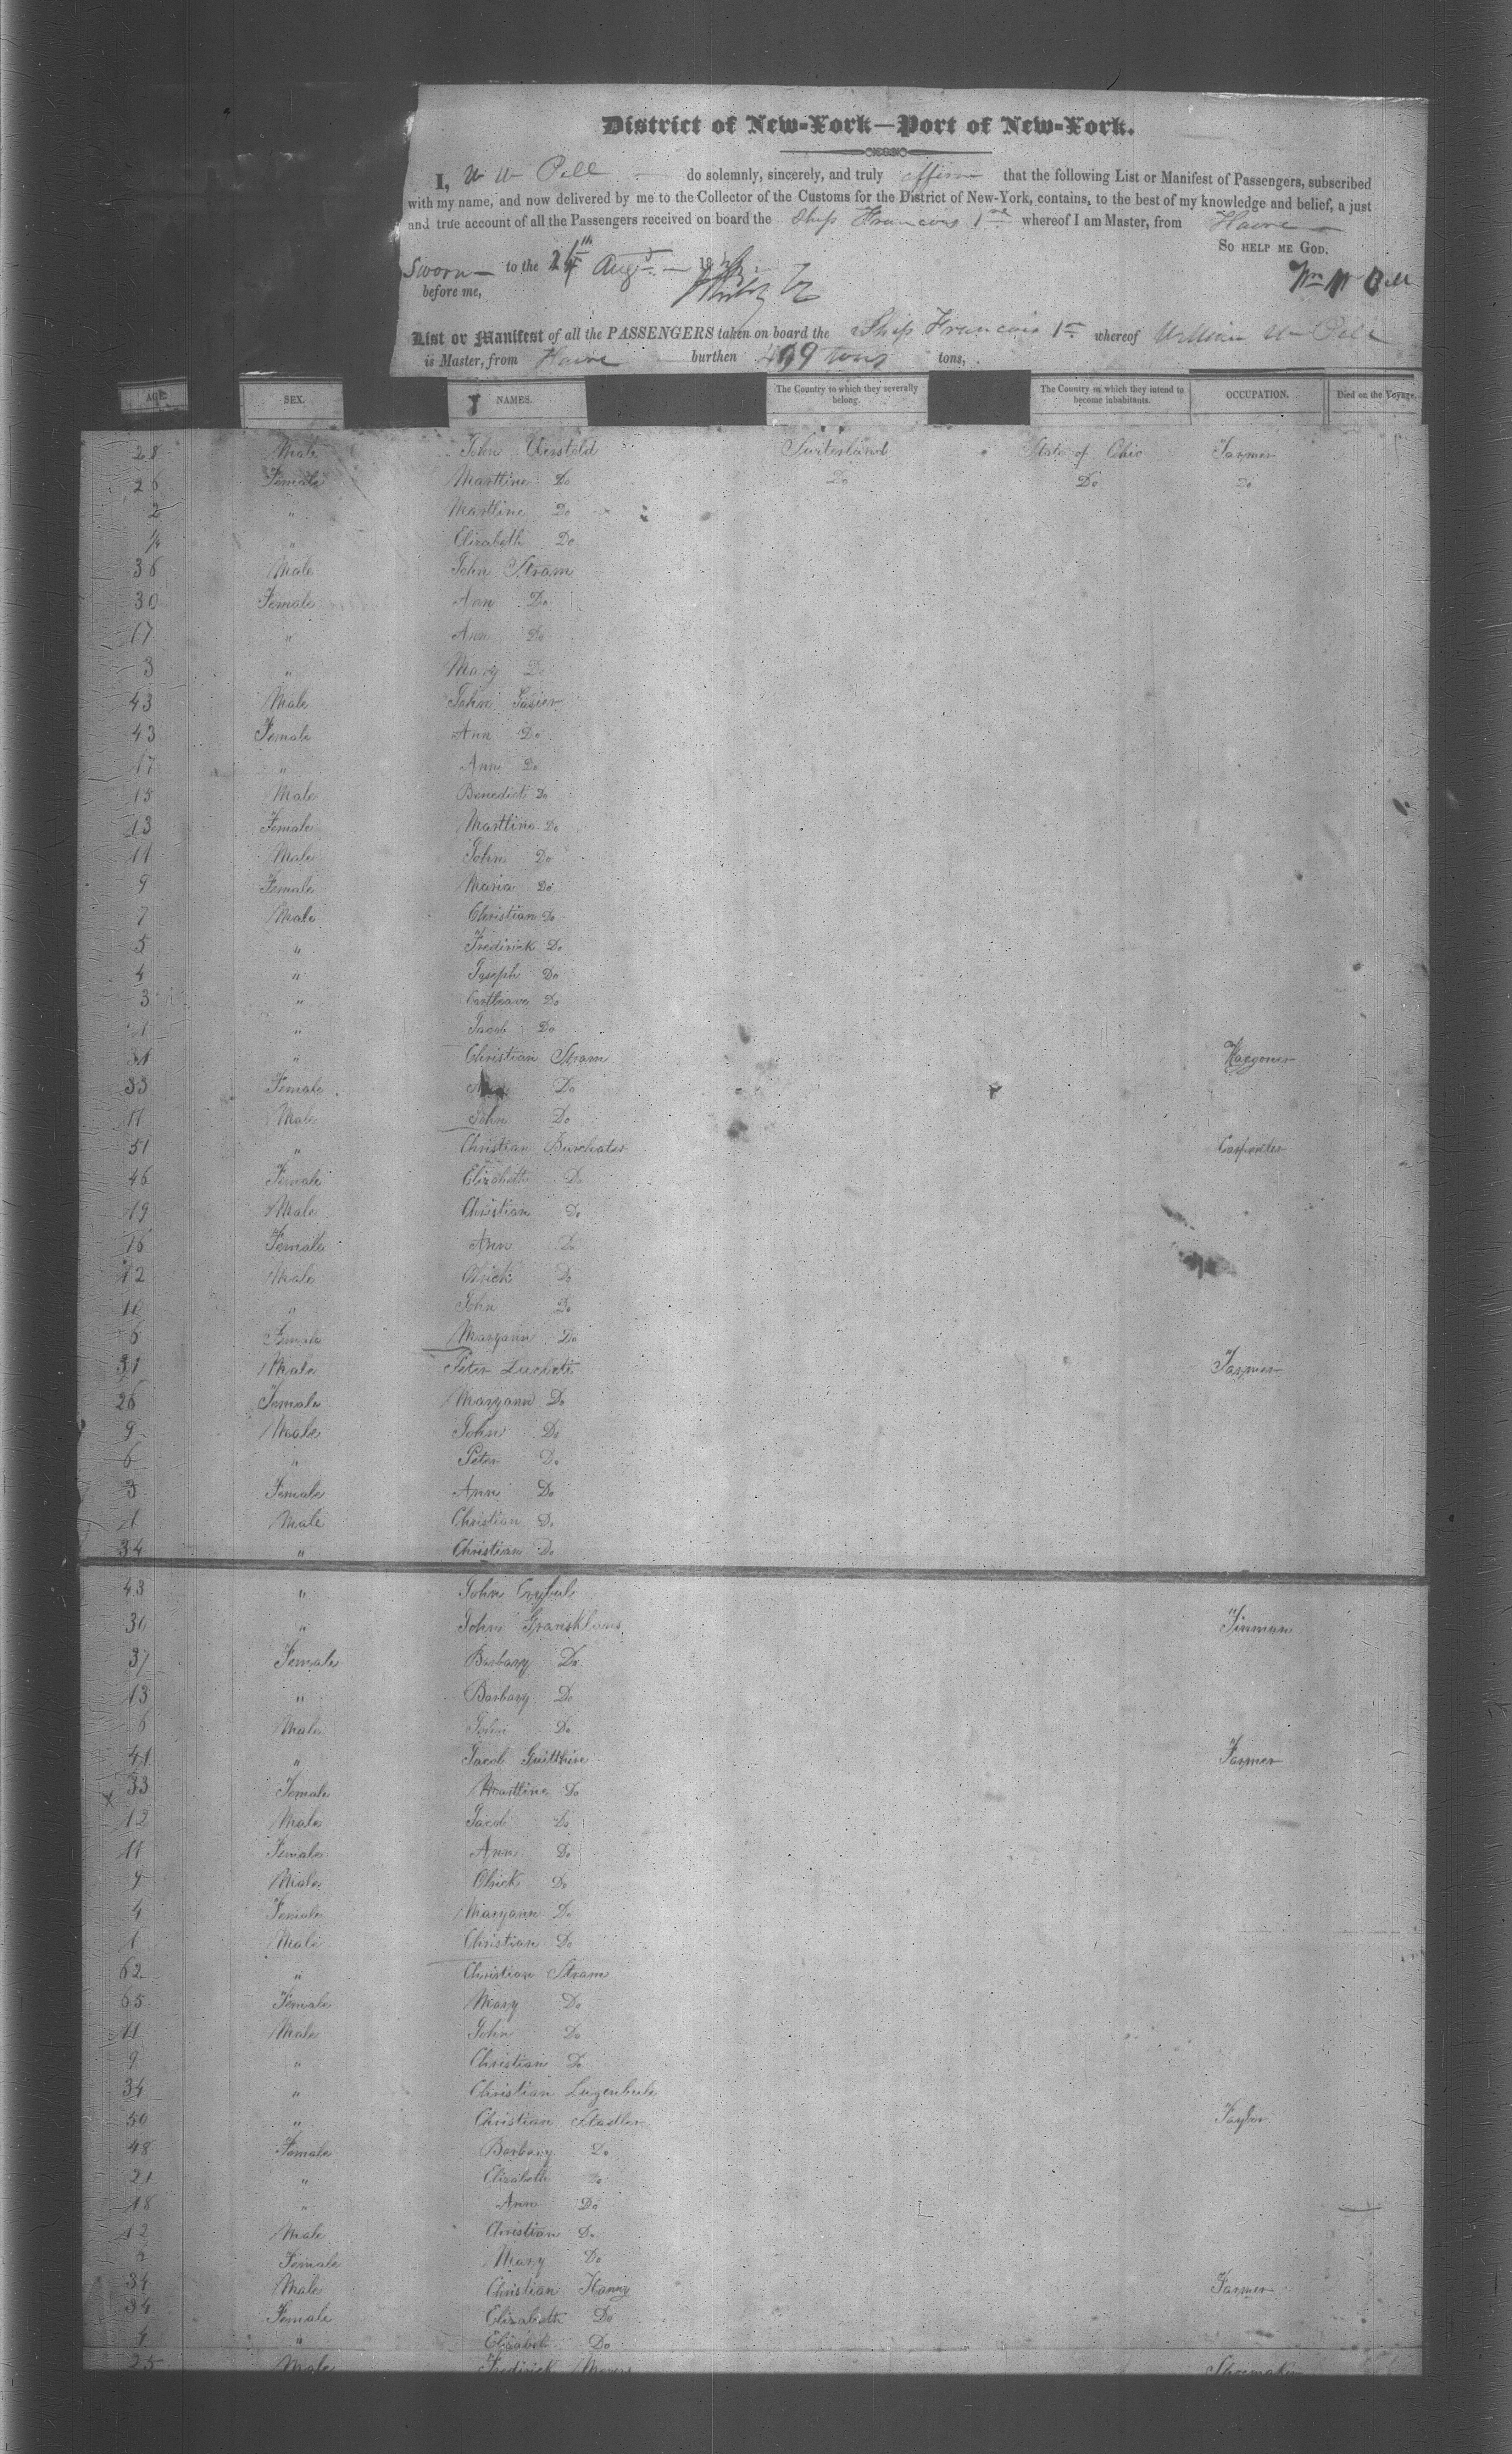 District of New-York—Port of New-York.
I, W W Pell do solemnly, sincerely, and truly affirm that the following List or Manifest of Passengers, subscribed
with my name, and now delivered by me to the Collector of the Customs for the District of New-York, contains, to the best of my knowledge and belief, a just
and true account of all the Passengers received on board the Ship Francois 1st whereof I am Master, from Havre
So help me God.
Sworn to the 24th Augt 18
before me,
Wm W Pell
List or Manifest of all the PASSENGERS taken on board the Ship Francois 1st whereof William W Pell
is Master, from Havre burthen 499 tons tons,
AGE. SEX. NAMES. The Country to which they severally belong. The Country in which they intend to become inhabitants. OCCUPATION. Died on the Voyage.
28 Male John Uerstold Switerland State of Ohio Farmer
26 Female Marttine Do Do Do Do
2 " Marttine Do
1/4 " Elizabeth Do
36 Male John Stram
30 Female Ann Do
17 " Ann Do
3 " Mary Do
43 Male John Gasier
43 Female Ann Do
17 " Ann Do
15 Male Benedict Do
13 Female Marttine Do
11 Male John Do
9 Female Maria Do
7 Male Christian Do
5 " Frederick Do
4 " Joseph Do
3 " Do
1 " Jacob Do
31 " Christian Stram Waggoner
33 Female Do
11 Male John Do
51 " Christian Burchater Carpenter
46 Female Elizabeth Do
19 Male Christian Do
16 Female Ann Do
12 Male Olrick Do
10 " John Do
6 Female Maryann Do
31 Male Peter Luchete Farmer
26 Female Maryann Do
9 Male John Do
6 " Peter Do
3 Female Ann Do
1 Male Christian Do
34 " Christian Do
43 " John
30 " John Gransklaus Tinman
37 Female Barbary Do
13 " Barbary Do
6 Male John Do
41 " Jacob Guilthire Farmer
33 Female Marttine Do
12 Male Jacob Do
11 Female Ann Do
9 Male Olrick Do
4 Female Maryann Do
1 Male Christian Do
62 " Christian Stram
65 Female Mary Do
11 Male John Do
9 " Christian Do
34 " Christian Lugenbule
50 " Christian Stadler Taylor
48 Female Barbary Do
21 " Elizabeth Do
18 " Ann Do
12 Male Christian Do
Female Mary Do
34 Male Christian Hanny Farmer
34 Female Elizabeth Do
4 " Elizabeth Do
25 Male Fredirick Moyer Shoemaker